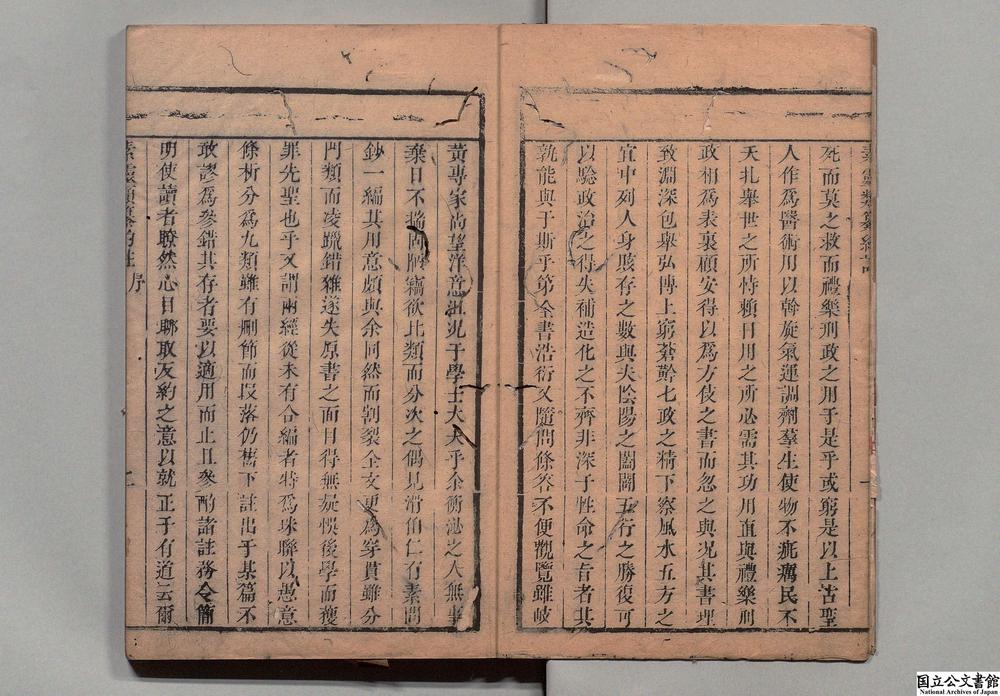 死而莫之救而禮樂刑政之用于是乎或窮是以上古聖
人作為醫術用以斡旋氣運調劑羣生使物不疵癘民不
夭札舉世之所恃賴日用之所必需其功用直與禮樂刑
政相為表裏顧安得以為方伎之書而忽之與况其書理
致淵深包舉弘博上窮蒼齡七政之精下察風水五方之
宜中列人身賅存之數與夫陰陽之闔闢五行之勝復可
以驗政治之得失補造化之不齊非深于性命之旨者其
孰能與于斯乎第全書浩衍又隨問條答不便觀覽雖岐
黃專家尚望洋意沮况于學士大夫乎余衡泌之人無事
棄日不揣固陋竊欲比類而分次之偶見滑伯仁有素問
鈔一編其用意頗與余同然而割裂全文更為穿貫雖分
門類而凌躐錯雜遂失原書之面目得無疑悞後學而獲
罪先聖也乎又謂兩經從未有合編者特為珠聯以愚意
條析分為九類雖有刪節而段落仍舊下註出于某篇不
敢謬為參錯其存者要以適用而止且參酌諸註務令簡
明使讀者瞭然心目聊取反約之意以就正于有道云爾
素靈類纂約註 序 二
国立公文書館
National Archives of Japan